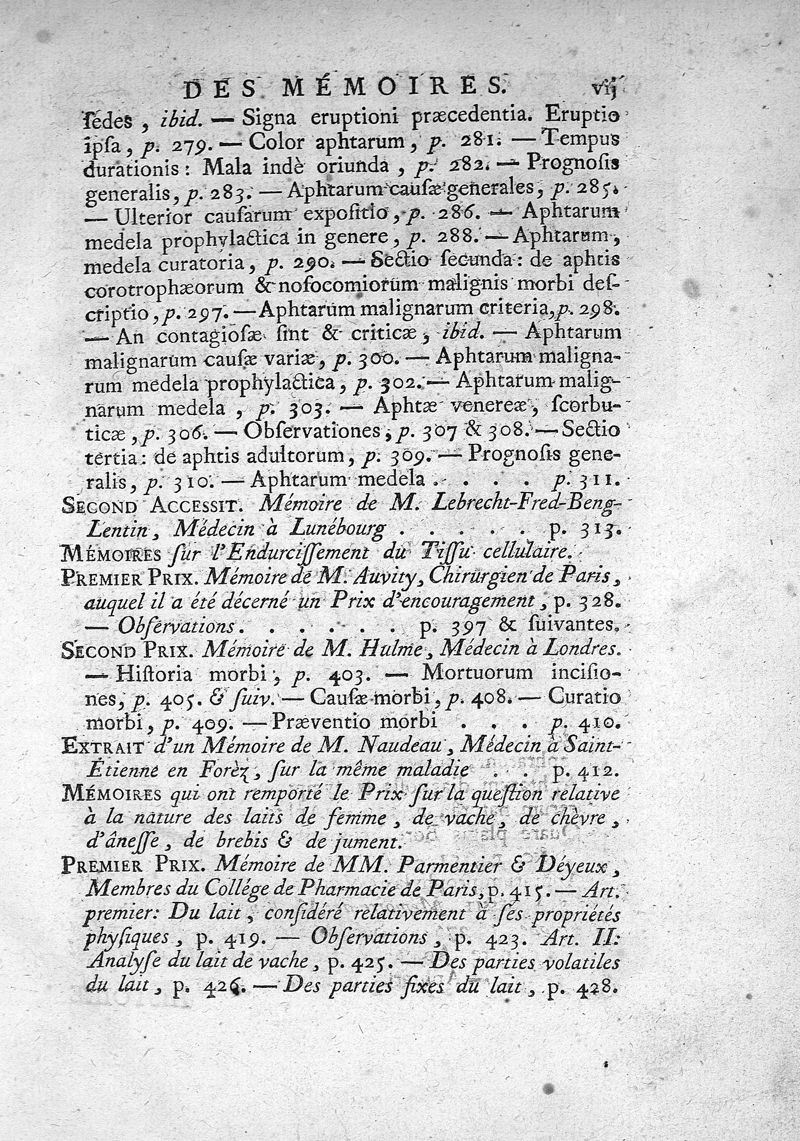 DES MÉMOIRES. vij
ſedes, ibid. — Signa eruptioni præcedentia. Eruptio
ipſa, p. 279. — Color aphtarum, p. 281. — Tempus
durationis : Mala indè oriunda, p. 282. — Prognoſis
generalis, p. 283. — Aphtarum cauſæ generales, p. 285.
— Ulterior cauſarum expoſitio, p. 286. — Aphtarum
medela prophylactica in genere, p. 288. — Aphtarum,
medela curatoria, p. 290. — Sectio ſecunda : de aphtis
corotrophæorum & noſocomiorum malignis morbi deſ-
criptio, p. 297. — Aphtarum malignarum criteria, p. 298.
— An contagioſæ ſint & criticæ, ibid. — Aphtarum
malignarum cauſæ variæ, p. 300. — Aphtarum maligna-
rum medela prophylactica, p. 302. — Aphtarum malig-
narum medela, p. 303. — Aphtæ venereæ, ſcorbu-
ticæ, p. 306. — Obſervationes, p. 307 & 308. — Sectio
tertia : de aphtis adultorum, p. 309. — Prognoſis gene-
ralis, p. 310. — Aphtarum medela . . . . p. 311.
SECOND ACCESSIT. Mémoire de M. Lebrecht-Fred-Beng-
Lentin, Médecin à Lunébourg . . . . . p. 313.
MÉMOIRES ſur l'Endurciſſement du Tiſſu cellulaire.
PREMIER PRIX. Mémoire de M. Auvity, Chirurgien de Paris,
auquel il a été décerné un Prix d'encouragement, p. 328.
— Obſervations. . . . . . . p. 397 & ſuivantes.
SECOND PRIX. Mémoire de M. Hulme, Médecin à Londres.
— Hiſtoria morbi, p. 403. — Mortuorum inciſio-
nes, p. 405. & ſuiv. — Cauſæ morbi, p. 408. — Curatio
morbi, p. 409. — Præventio morbi . . . p. 410.
EXTRAIT d'un Mémoire de M. Naudeau, Médecin à Saint-
Étienne en Forèz, ſur la même maladie . . . p. 412.
MÉMOIRES qui ont remporté le Prix ſur la queſtion relative
à la nature des laits de femme, de vache, de chèvre,
d'âneſſe, de brebis & de jument.
PREMIER PRIX. Mémoire de MM. Parmentier & Déyeux,
Membres du Collége de Pharmacie de Paris, p. 415. — Art.
premier : Du lait, conſidéré relativement à ſes propriétés
phyſiques, p. 419. — Obſervations, p. 423. Art. II :
Analyſe du lait de vache, p. 425. — Des parties volatiles
du lait, p. 426. — Des parties fixes du lait, p. 428.